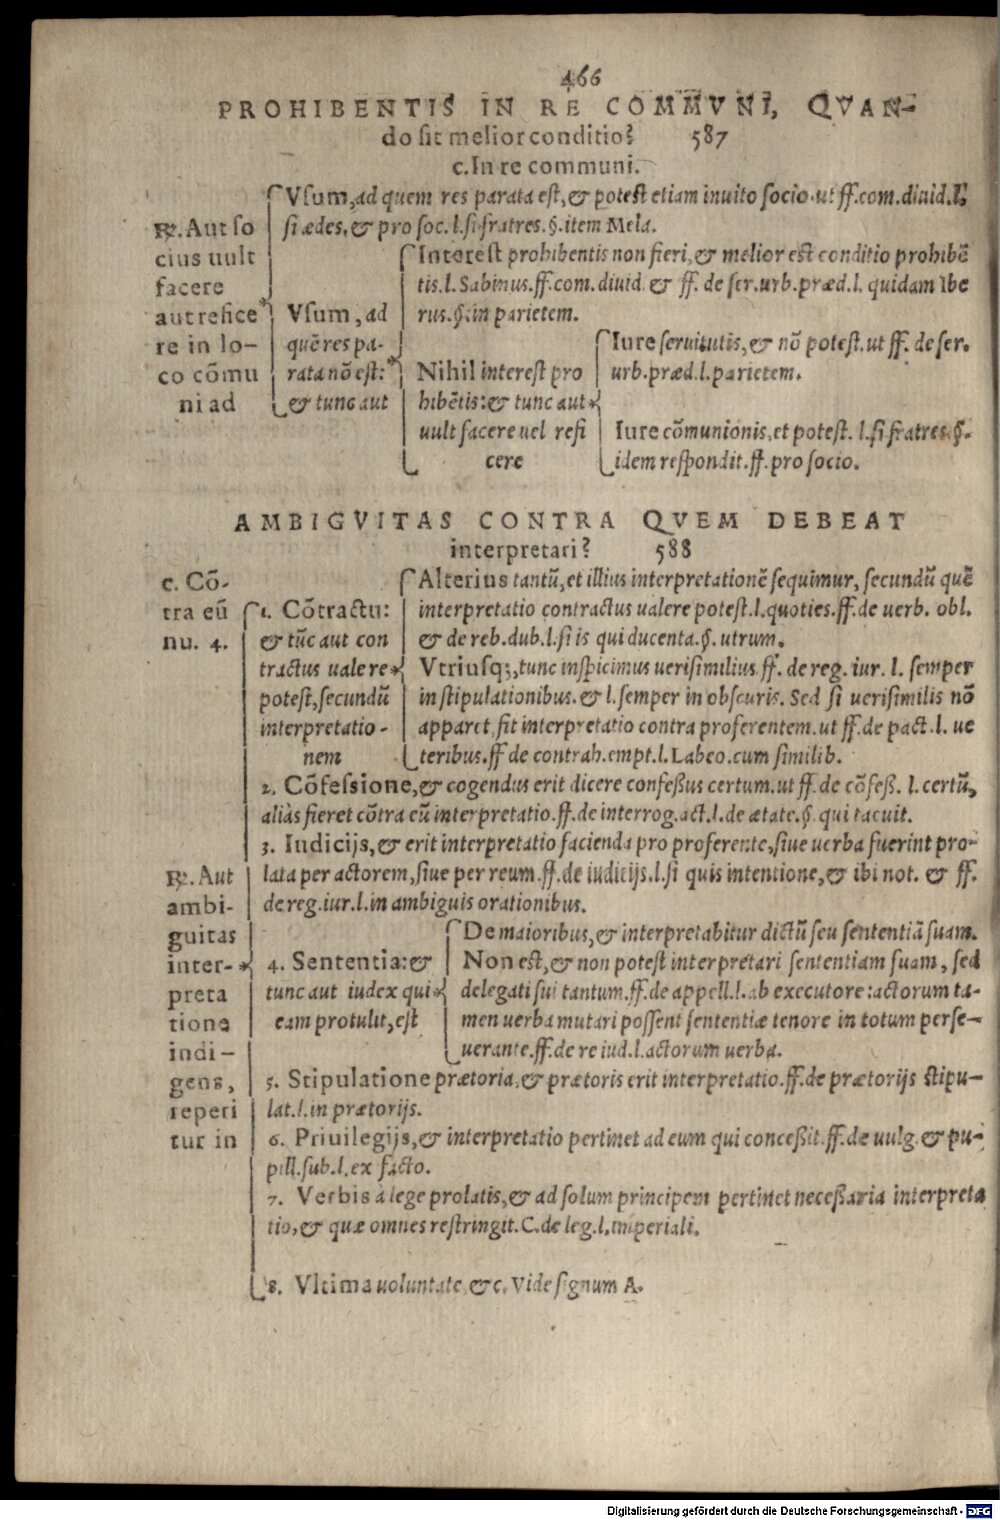 466
PROHIBENTIS IN RE COMMVNI, QVAN-
do sit melior conditio? 587
c. In re communi.
Vsum, ad quem res parata est, & potest etiam inuito socio. ut ff. com. diuid. l.
si ædes, & pro soc. l. si fratres. §. item Mela.
℞. Aut so
cius uult
facere
aut refice
re in lo-
co cōmu
ni ad
Vsum, ad
quē res pa-
rata nō est:
& tunc aut
Interest prohibentis non fieri, & melior est conditio prohibē
tis. l. Sabinus. ff. com. diuid. & ff. de ser. urb. præd. l. quidam Ibe
rus. §. in parietem.
Nihil interest pro
hibētis: & tunc aut
uult facere uel refi
cere
Iure seruitutis, & nō potest. ut ff. de ser.
urb. præd. l. parietem.
Iure cōmunionis, et potest. l. si fratres. §.
idem respondit. ff. pro socio.
AMBIGVITAS CONTRA QVEM DEBEAT
interpretari? 588
c. Cō-
tra eū
nu. 4.
℞. Aut
ambi-
guitas
inter-
preta
tione
indi-
gens,
reperi
tur in
1. Cōtractu:
& tūc aut con
tractus ualere
potest, secundū
interpretatio-
nem
Alterius tantū, et illius interpretationē sequimur, secundū quē
interpretatio contractus ualere potest. l. quoties. ff. de uerb. obl.
& de reb. dub. l. si is qui ducenta. §. utrum.
Vtriusq;, tunc inspicimus uerisimilius ff. de reg. iur. l. semper
in stipulationibus. & l. semper in obscuris. Sed si uerisimilis nō
apparet, fit interpretatio contra proferentem. ut ff. de pact. l. ue
teribus. ff. de contrah. empt. l. Labeo. cum similib.
2. Cōfessione, & cogendus erit dicere confeßus certum. ut ff. de cōfeß. l. certū,
aliàs fieret cōtra eū interpretatio. ff. de interrog. act. l. de ætate. §. qui tacuit.
3. Iudicijs, & erit interpretatio facienda pro proferente, siue uerba fuerint pro-
lata per actorem, siue per reum. ff. de iudicijs. l. si quis intentione, & ibi not. & ff.
de reg. iur. l. in ambiguis orationibus.
4. Sententia: &
tunc aut iudex qui
eam protulit, est
De maioribus, & interpretabitur dictū seu sententiā suam.
Non est, & non potest interpretari sententiam suam, sed
delegati sui tantum. ff. de appell. l. ab executore: actorum ta-
men uerba mutari possent sententiæ tenore in totum perse-
uerante. ff. de re iud. l. actorum uerba.
5. Stipulatione prætoria, & prætoris erit interpretatio. ff. de prætorijs stipu-
lat. l. in prætorijs.
6. Priuilegijs, & interpretatio pertinet ad eum qui conceßit. ff. de uulg. & pu-
pill. sub. l. ex facto.
7. Verbis à lege prolatis, & ad solum principem pertinet neceßaria interpreta
tio, & quæ omnes restringit. C. de leg. l. imperiali.
8. Vltima uoluntate &c. Vide signum A.
Digitalisierung gefördert durch die Deutsche Forschungsgemeinschaft - DFG